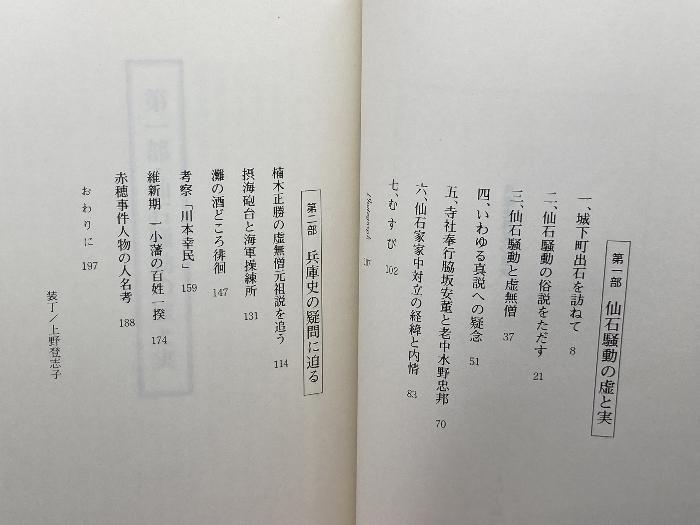 第一部 仙石騒動の虚と実
一、城下町出石を訪ねて 8
二、仙石騒動の俗説をただす 21
三、仙石騒動と虚無僧 37
四、いわゆる真説への疑念 51
五、寺社奉行脇坂安董と老中水野忠邦 70
六、仙石家家中対立の経緯と内情 83
七、むすび 102
第二部 兵庫史の疑問に迫る
楠木正勝の虚無僧元祖説を追う 114
摂海砲台と海軍操練所 131
灘の酒どころ徘徊 147
考察「川本幸民」 159
維新期 一小藩の百姓一揆 174
赤穂事件人物の人名考 188
おわりに 197
装丁/上野登志子